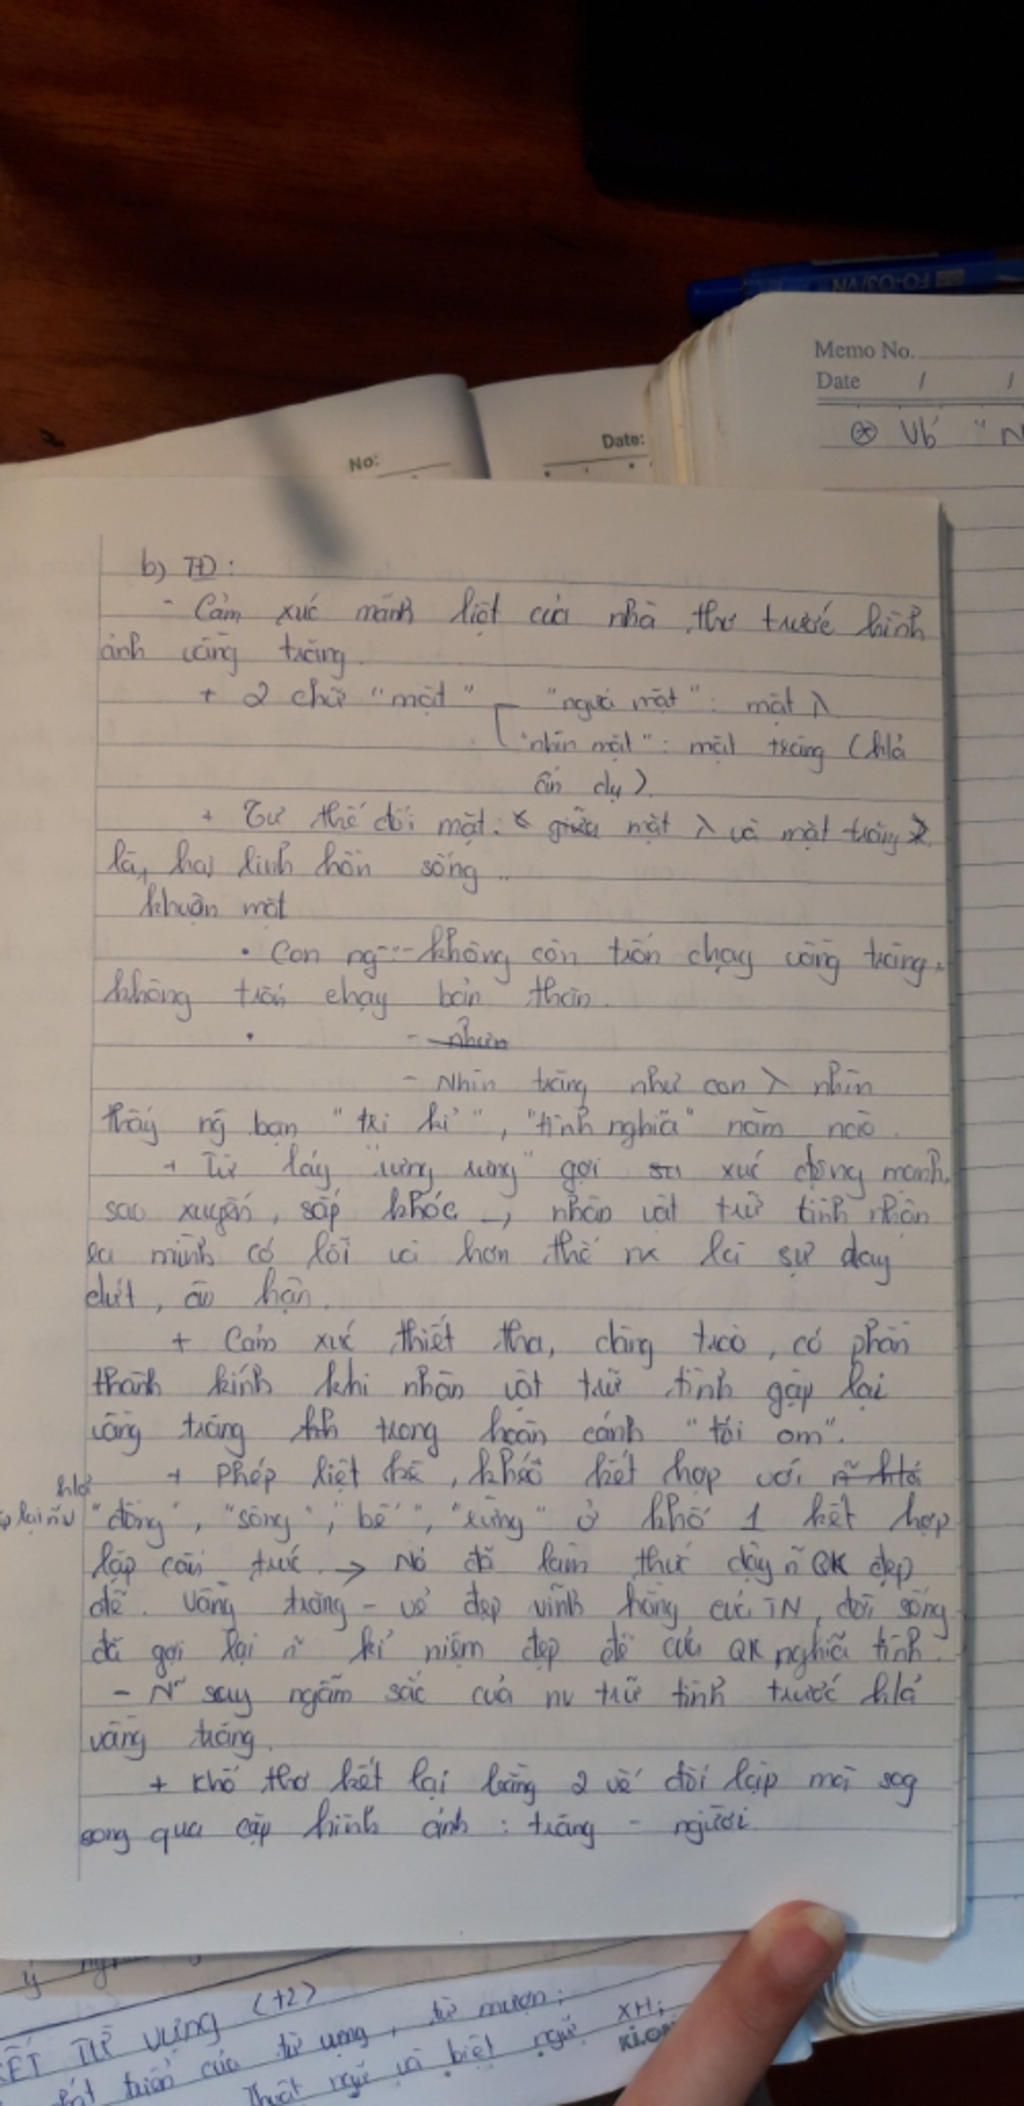 FO-03/VN
Memo No.
Date / /
No:
Date:
⊛ Vb "N
b) TĐ:
- Cảm xúc mãnh liệt của nhà thơ trước hình
ảnh vầng trăng.
+ 2 chữ "mặt" "ngửa mặt": mặt λ
"nhìn mặt": mặt trăng (h/ả
ẩn dụ).
+ Tư thế đối mặt: giữa mặt λ và mặt trăng
là hai linh hồn sống
khuôn mặt
• Con ng... không còn trốn chạy vầng trăng,
không trốn chạy bản thân.
• - nhưn
- Nhìn trăng như con λ nhìn
thấy ng bạn "tri kỉ", "tình nghĩa" năm nào.
+ Từ láy "rưng rưng" gợi xúc động mạnh,
sao xuyến, sắp khóc → nhân vật trữ tình nhận
ra mình có lỗi và hơn thế nx là sự day
dứt, ân hận.
+ Cảm xúc thiết tha, dâng trào, có phần
thành kính khi nhân vật trữ tình gặp lại
vầng trăng trong hoàn cảnh "tối om".
+ Phép liệt kê, khổ kết hợp với
h/ả
lại như "đồng", "sông", "bể", "rừng" ở khổ 1 kết hợp
lặp cấu trúc → Nó đã làm thức dậy ñ QK đẹp
đẽ. Vầng trăng - vẻ đẹp vĩnh hằng của TN, đời sống
đã gợi lại ñ kỉ niệm đẹp đẽ của QK nghĩa tình.
- N~ suy ngẫm sâc của nv trữ tình trước h/ả
vầng trăng.
+ Khổ thơ kết lại bằng 2 vế đối lập mà sog
song qua cặp hình ảnh: trăng - người
ý
KẾT TỪ VỰNG (t2)
triển của từ vựng, từ mượn;
Thuật ngữ và biệt ngữ XH;